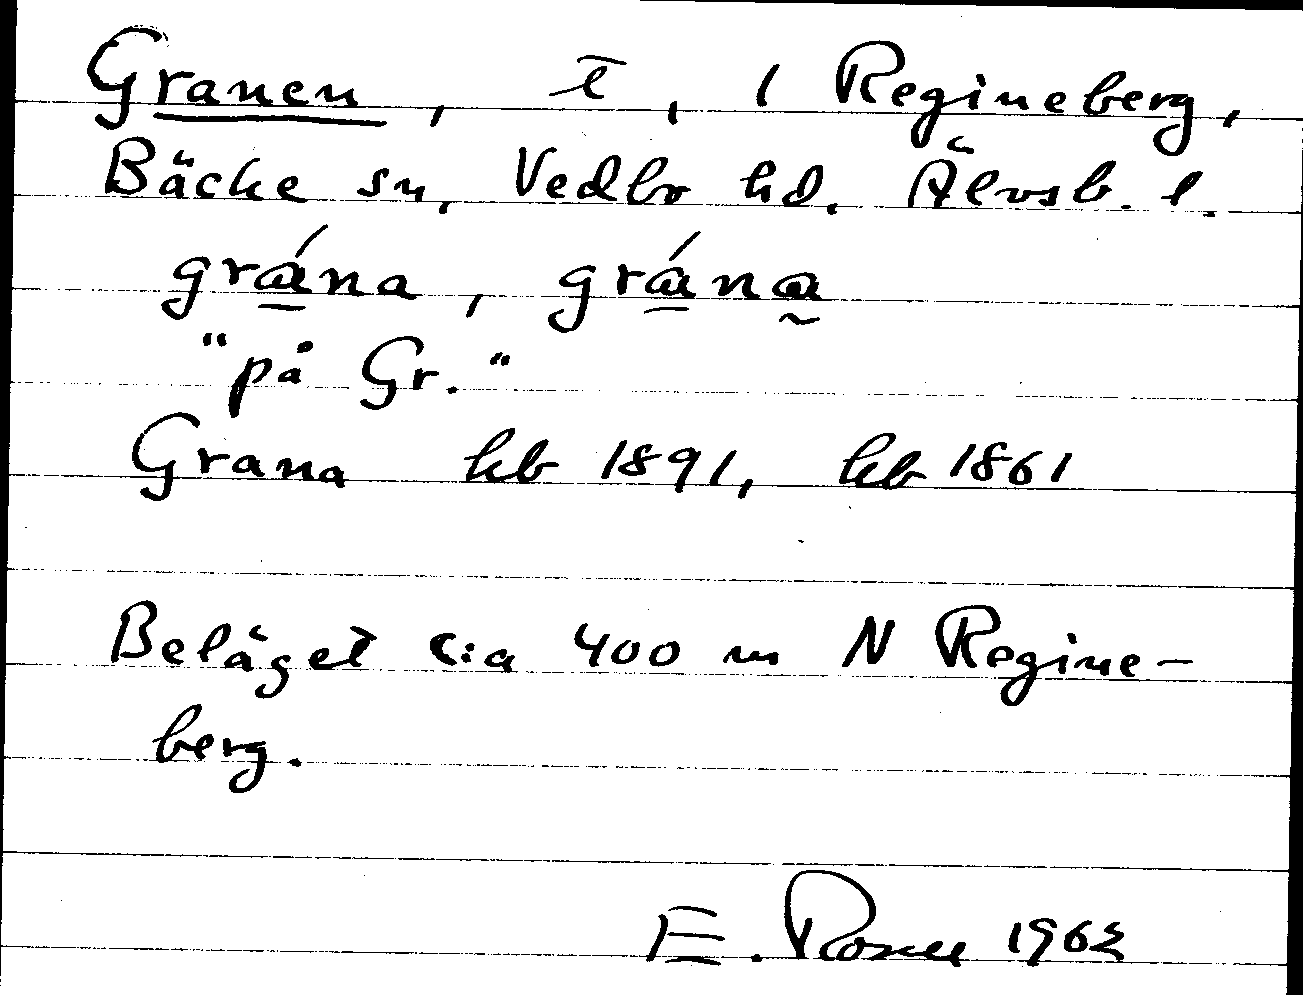 Granen, t, 1 Regineberg,
Bäcke sn, Vedbo hd. Älvsb. l.
grána, grána
"på Gr."
Grana hb 1891, hb 1861
Beläget c:a 400 m N Regine-
berg.
E. 1963